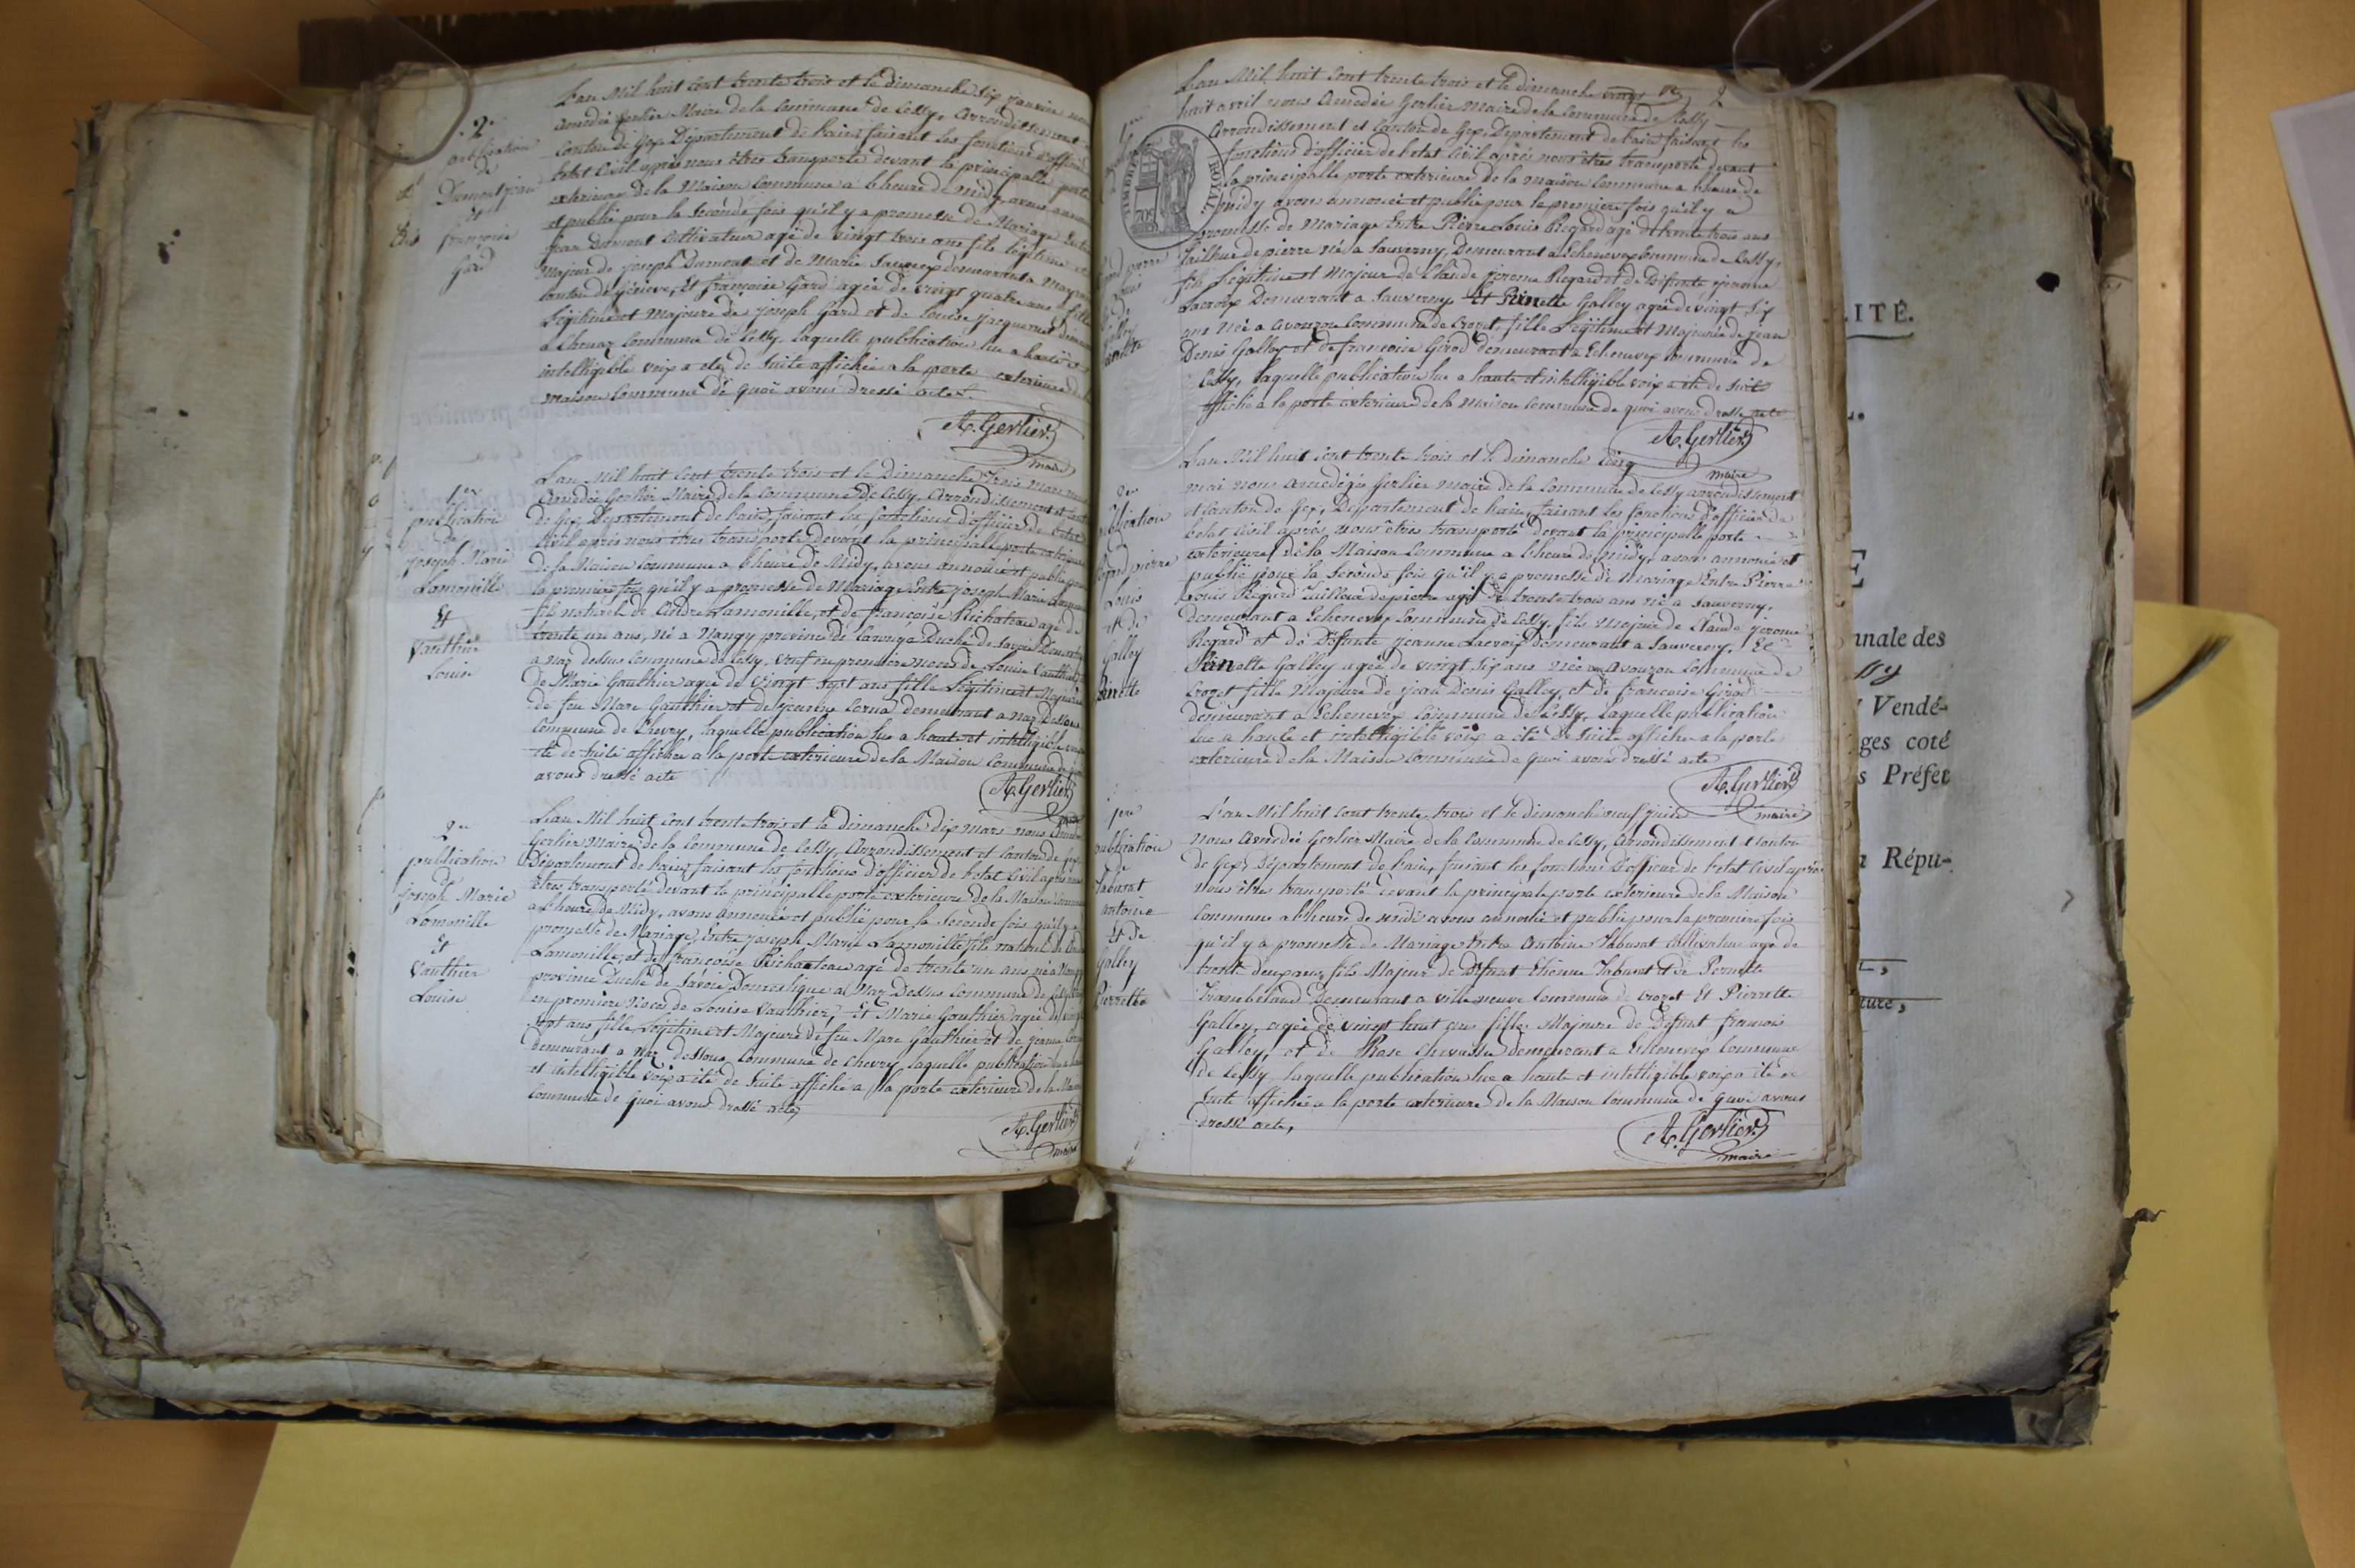 2e
publication
de
Dumont jean
et
françoise
Gard
L'an Mil huit cent trente trois et le dimanche Six Janvier nous
Amedée Gerlier Maire de la Commune de Cessy, Arrondissement
Canton de Gex Département de l'ain, faisant les fonctions d'officier
l'etat Civil après nous êtres transporté devant la principalle porte
exterieure de la Maison Commune a l'heure de midy, avons annoncé
et publié pour la seconde fois qu'il y a promesse de Mariage Entre
jean Dumont Cultivateur agé de vingt trois ans fils légitime et
Majeur de joseph Dumont et de Marie demeurant a
Canton de Génève, Et françoise Gard agée de vingt quatre ans fille
Légitime et Majeure de joseph Gard et de Louise
a Commune de Cessy, laquelle publication lue a haute et
intelligible voix a eté de suite affichée a la porte exterieure de la
maison Commune de quoi avons dressé acte.
A. Gerlier
maire
1ere
publication
de
joseph Marie
Lamonille
Et
Vauthier
Louise
L'an Mil huit Cent trente trois et le Dimanche trois Mars nous
Amédée Gerlier Maire de la Commune de Cessy, Arrondissement et Canton
de Gex, Département de l'ain, faisant les fonctions d'officier de l'etat
Civil après nous êtres transporté devant la principalle porte exterieure
de la Maison Commune a l'heure de Midy, avons annoncé et publié pour
la première fois qu'il y a promesse de Mariage Entre joseph Marie
fils naturel de André Lamonille, et de françoise Richateau agé de
trente un ans, Né a Nangy province de Carouge Duché de Savoie
a Naz dessus Commune de Cessy, veuf en première noces de Louise Vauthier, Et
de Marie Gauthier agée de vingt sept ans fille Légitime et Majeure
de feu Marc Gauthier et de jeanne demeurant a Naz Dessous
Commune de Chevry, laquelle publication lue a haute et intelligible voix
eté de suite affichée a la porte exterieure de la Maison Commune de quoi
avons dressé acte
A. Gerlier
2e
publication
de
joseph Marie
Lamonille
Et
Vauthier
Louise
L'an Mil huit Cent trente trois et le dimanche dix mars nous
Gerlier Maire de la Commune de Cessy, Arrondissement et Canton de Gex
Département de l'ain, faisant les fonctions d'officier de l'etat Civil après nous
êtres transporté devant la principalle porte exterieure de la Maison Commune
a l'heure de Midy, avons annoncé et publié pour la seconde fois qu'il y a
promesse de Mariage, Entre joseph Marie Lamonille fils naturel de
Lamonille, et de françoise Richateau agé de trente un ans né a
province Duché de Savoie Domestique a Naz Dessus Commune de Cessy
en première Noces de Louise Vauthier, Et Marie Gauthier agée de vingt
sept ans fille Légitime et Majeure de feu Marc Gauthier et de jeanne
demeurant a Naz dessous Commune de Chevry laquelle publication
et intelligible voix a été de suite affiché a la porte exterieure de la
Commune de quoi avons dressé acte,
A. Gerlier
maire
2
TIMBRE ROYAL
L'an Mil huit Cent trente trois et le dimanche vingt
huit avril nous Amédée Gerlier Maire de la Commune de Cessy
Arrondissement et Canton de Gex, Département de l'ain faisant les
fonctions d'officier de l'etat Civil après nous êtres transporté devant
la principalle porte exterieure de la maison Commune a l'heure de
midy avons annoncé et publié pour la première fois qu'il y a
promesse de Mariage Entre Pierre Louis Regard agé de trente trois ans
Tailleur de pierre né a Sauverny, Demeurant a Echenevex Commune de Cessy,
fils Légitime et Majeur de Claude jerome Regard et de Défunte jeanne
Lacroix Demeurant a Sauverny Et Pernette Galley agée de vingt six
ans Née a Avouzon Commune de Crozet, fille Légitime et Majeure de jean
Denis Galley et de françoise Girod demeurant a Echenevex Commune de
Cessy, laquelle publication lue a haute et intelligible voix a été de suite
affiché a la porte exterieure de la Maison Commune de quoi avons dressé acte
A. Gerlier
maire
2e
publication
de
Regard pierre
Louis
et de
Galley
Pernette
L'an Mil huit Cent trente trois et le dimanche Cinq
mai nous Amédée Gerlier maire de la Commune de Cessy arrondissement
et Canton de Gex, Département de l'ain, faisant les fonctions d'officier de
l'etat Civil après nous êtres transporté devant la principalle porte
exterieure de la Maison Commune a l'heure de midy, avons annoncé et
publié pour la seconde fois qu'il y a promesse de Mariage Entre Pierre
Louis Regard Tailleur de pierre agé de trente trois ans né a Sauverny,
demeurant a Echenevex Commune de Cessy, fils Majeur de Claude jérome
Regard et de Défunte Jeanne Lacroix demeurant a Sauverny, Et
Pernette Galley agée de vingt six ans Née a Avouzon Commune de
Crozet fille Majeure de jean Denis Galley, et de françoise Girod
demeurant a Echenevex Commune de Cessy, laquelle publication
lue a haute et intelligible voix a été de suite affichée a la porte
exterieure de la Maison Commune de quoi avons dressé acte
A. Gerlier
maire
1ere
publication
de
Tabusat
antoine
Et de
Galley
Pierrette
L'an Mil huit Cent trente trois et le dimanche neuf juin
nous Amédée Gerlier Maire de la Commune de Cessy, Arrondissement et Canton
de Gex, Département de l'ain, faisant les fonctions d'officier de l'etat Civil après
Nous êtres transporté devant la principale porte exterieure de la Maison
Commune a l'heure de midi avons annoncé et publié pour la premiere fois
qu'il y a promesse de Mariage Entre Antoine Tabusat Cultivateur agé de
trente deux ans, fils Majeur de Défunt Etienne Tabusat et de Pernette
Demeurant a Villeneuve Commune de Crozet Et Pierrette
Galley, agée de vingt huit ans fille Majeure de Défunt françois
Galley, et de Rose Chevassu demeurant a Echenevex Commune
de Cessy, laquelle publication lue a haute et intelligible voix a été de
suite affichée a la porte exterieure de la Maison Commune de quoi avons
dressé acte,
A. Gerlier
maire
LITÉ.
L.
E
nnale des
Vendé-
ges coté
s Préfet
a Répu-
ture,